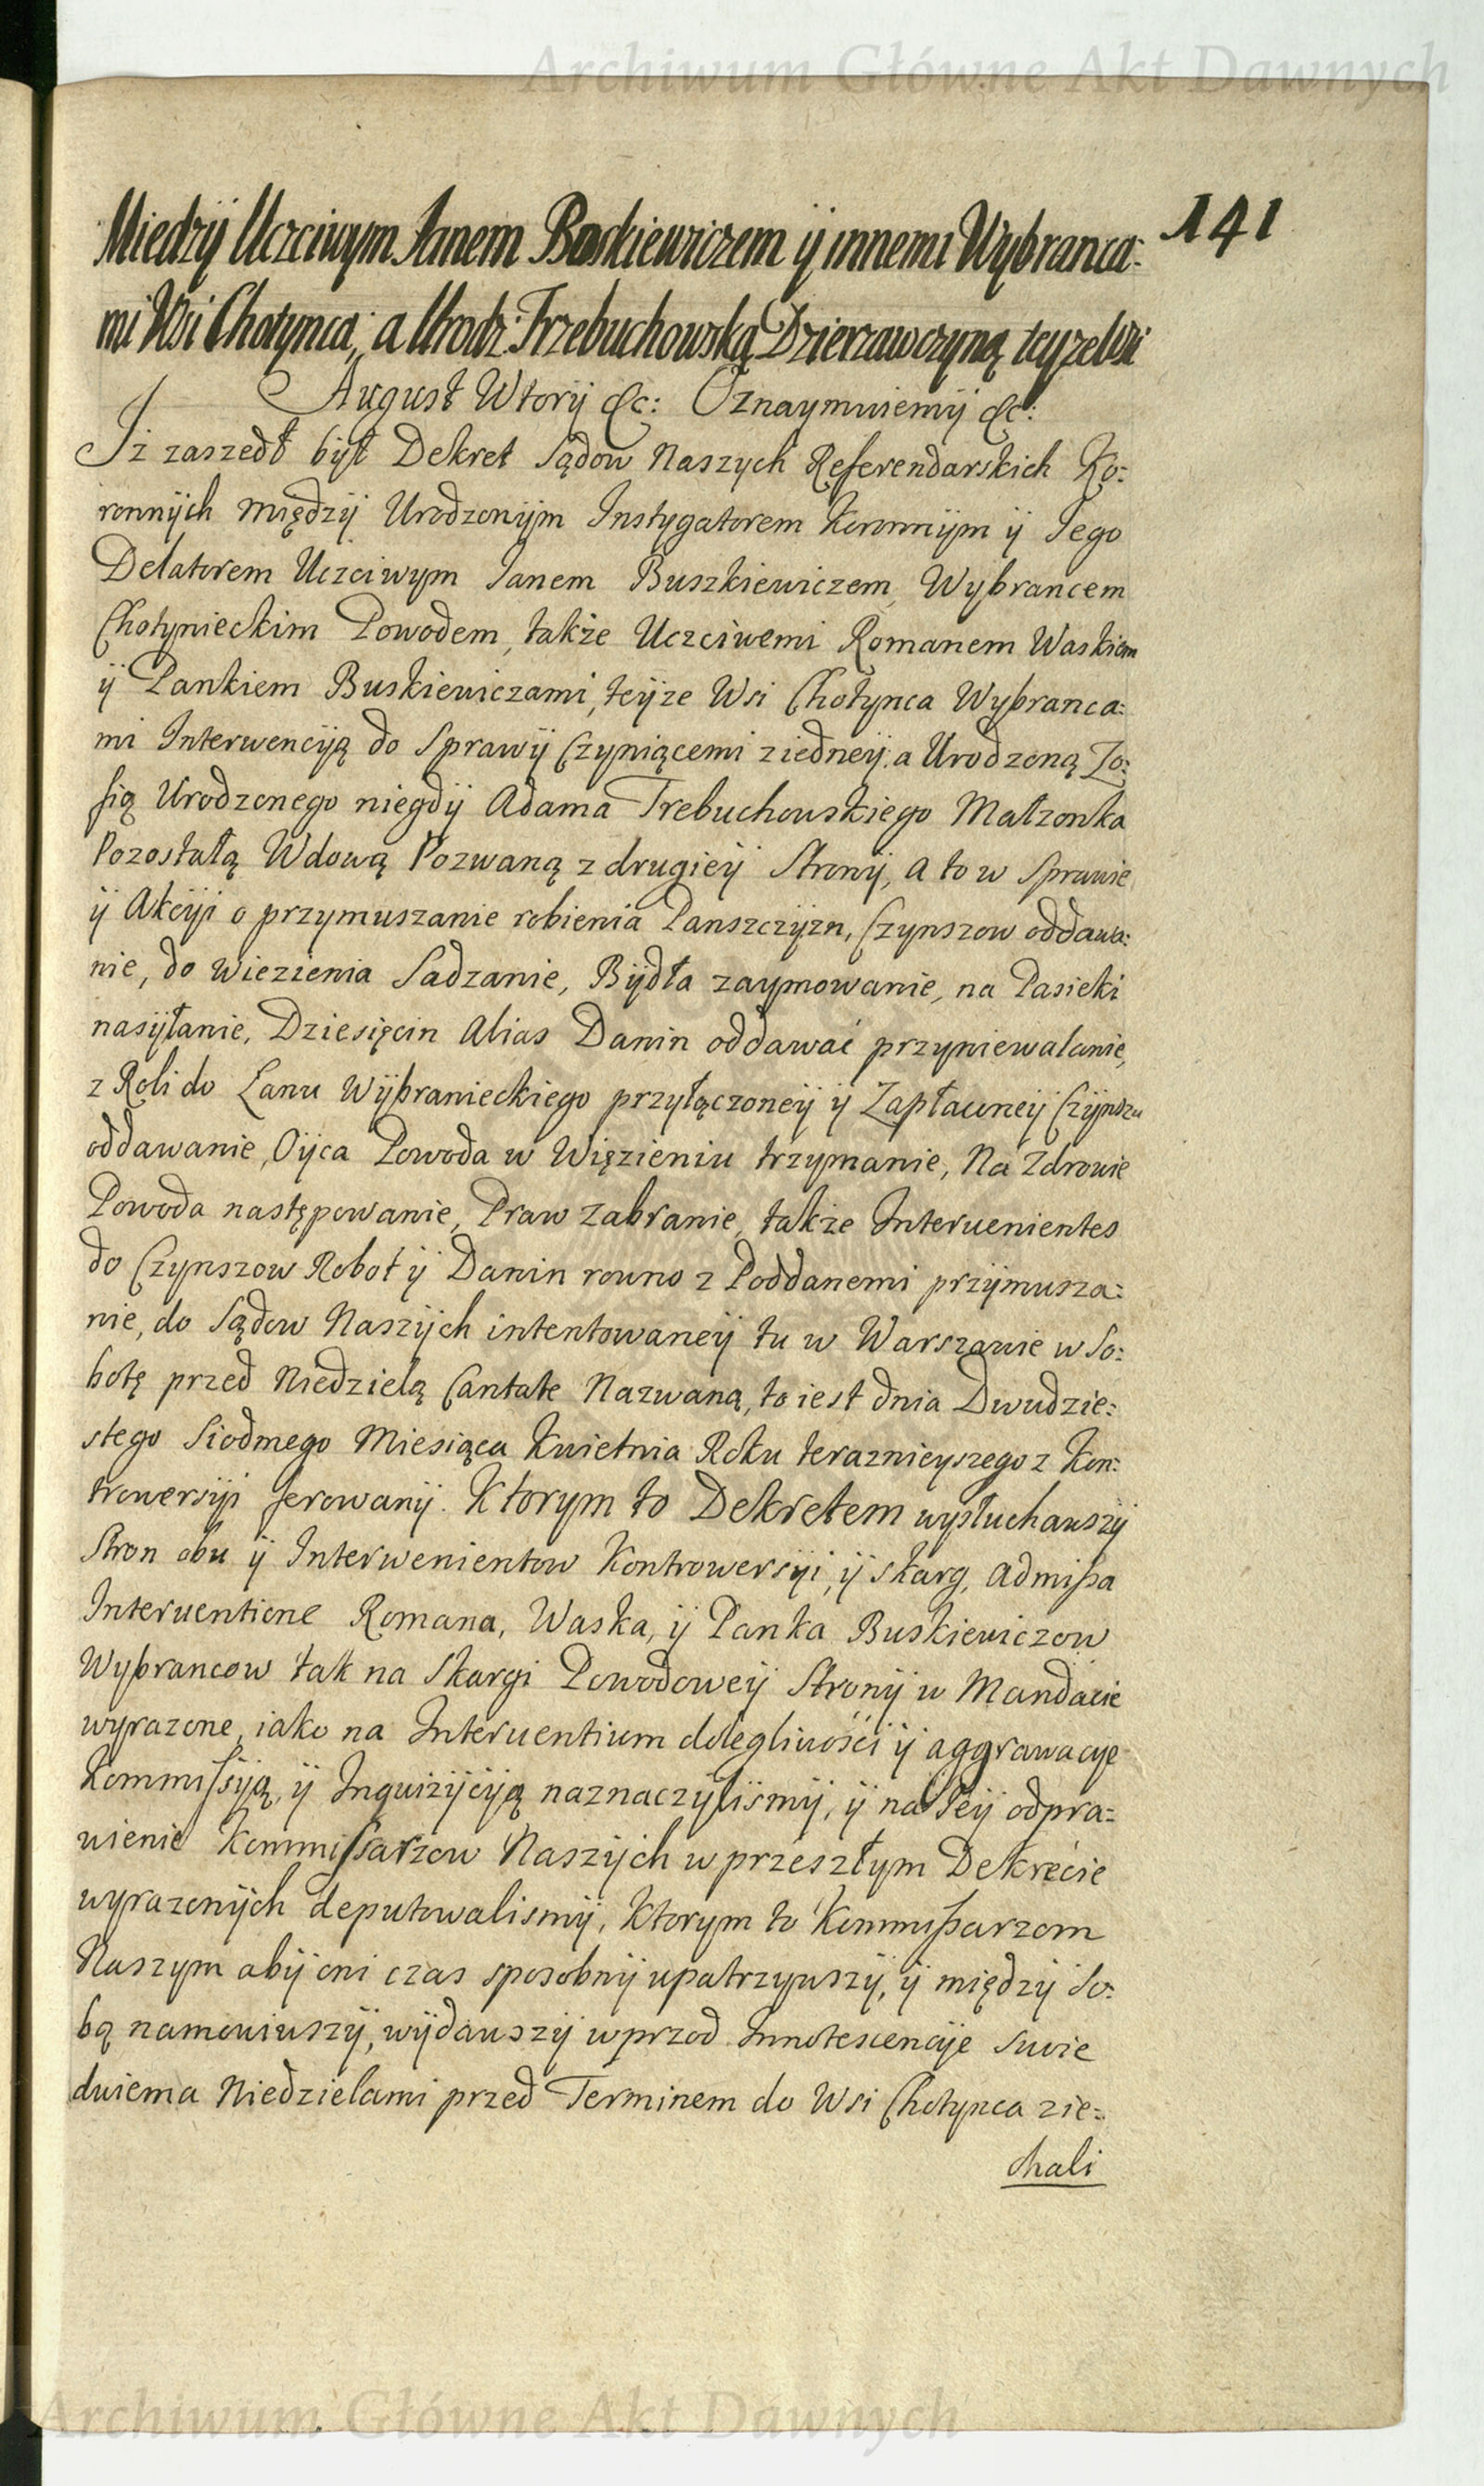 Archiwum Główne Akt Dawnych
141
Miedzÿ Uczciwym Janem Boskiewiczem ÿ innemi Wybranca:
mi Wsi Chotynca, a Urodz: Trzebuchowską Dzierzawczyną teyze Wsi
August Wtorÿ &c: Oznaymuiemÿ &c:
Iż zaszedł był Dekret Sądow Naszych Referendarskich Ko:
ronnÿch międzÿ Urodzonÿm Instygatorem Koronnÿm ÿ Jego
Delatorem Uczciwym Janem Buszkiewiczem, Wybrancem
Chotynieckim Powodem, także Uczciwemi Romanem Waskiem
ÿ Pankiem Buskiewiczami, teÿze Wsi Chotynca Wybranca:
mi Interwencÿą do Sprawÿ Czyniącemi z iedneÿ: a Urodzoną Zo:
fią Urodzonego niegdÿ Adama Trebuchowskiego Małzonka
Pozostałą Wdową Pozwaną z drugieÿ Stronÿ, a to w Sprawie
ÿ Akcÿi o przymuszanie robienia Panszczÿzn, Czynszow oddawa:
nie, do wiezienia Sadzanie, Bÿdła zaymowanie, na Pasieki
nasÿłanie, Dziesięcin Alias Danin oddawać przyniewalanie,
z Roli do Łanu Wÿbranieckiego przyłączoneÿ ÿ Zapławneÿ Czÿnszu
oddawanie, Oÿca Powoda w Więzieniu trzymanie, Na Zdrowie
Powoda następowanie, Praw zabranie, także Intervenientes
do Czynszow Robot ÿ Danin rowno z Poddanemi przÿmusza:
nie, do Sądow Naszÿch intentowaneÿ tu w Warszawie w So:
botę przed Niedzielą Cantate Nazwaną, to iest dnia Dwudzie:
stego Siodmego Miesiąca Kwietnia Roku teraznieyszego z Kon:
trowersÿi ferowanÿ. Ktorym to Dekretem wysłuchawszÿ
Stron obu ÿ Interwenientow Kontrowersÿi, ÿ skarg, admißa
Interventione Romana, Waska, ÿ Panka Buskiewiczow
Wybrancow tak na Skargi Powodoweÿ Stronÿ w Mandacie
wyrazone, iako na Interventium dolegliwości ÿ aggrawacye
Kommissÿą, ÿ Inquizÿcÿą naznaczÿlismÿ, ÿ na Jeÿ odpra:
wienie Kommissarzow Naszÿch w przeszłym Dekrecie
wyrazonÿch deputowalismÿ, Ktorym to Kommißarzom
Naszym abÿ oni czas sposobnÿ upatrzywszÿ, ÿ międzÿ So:
bą namowiwszÿ, wÿdawszÿ wprzod Innotescencÿe Swoie
dwiema Niedzielami przed Terminem do Wsi Chotynca zie:
chali
Archiwum Główne Akt Dawnych